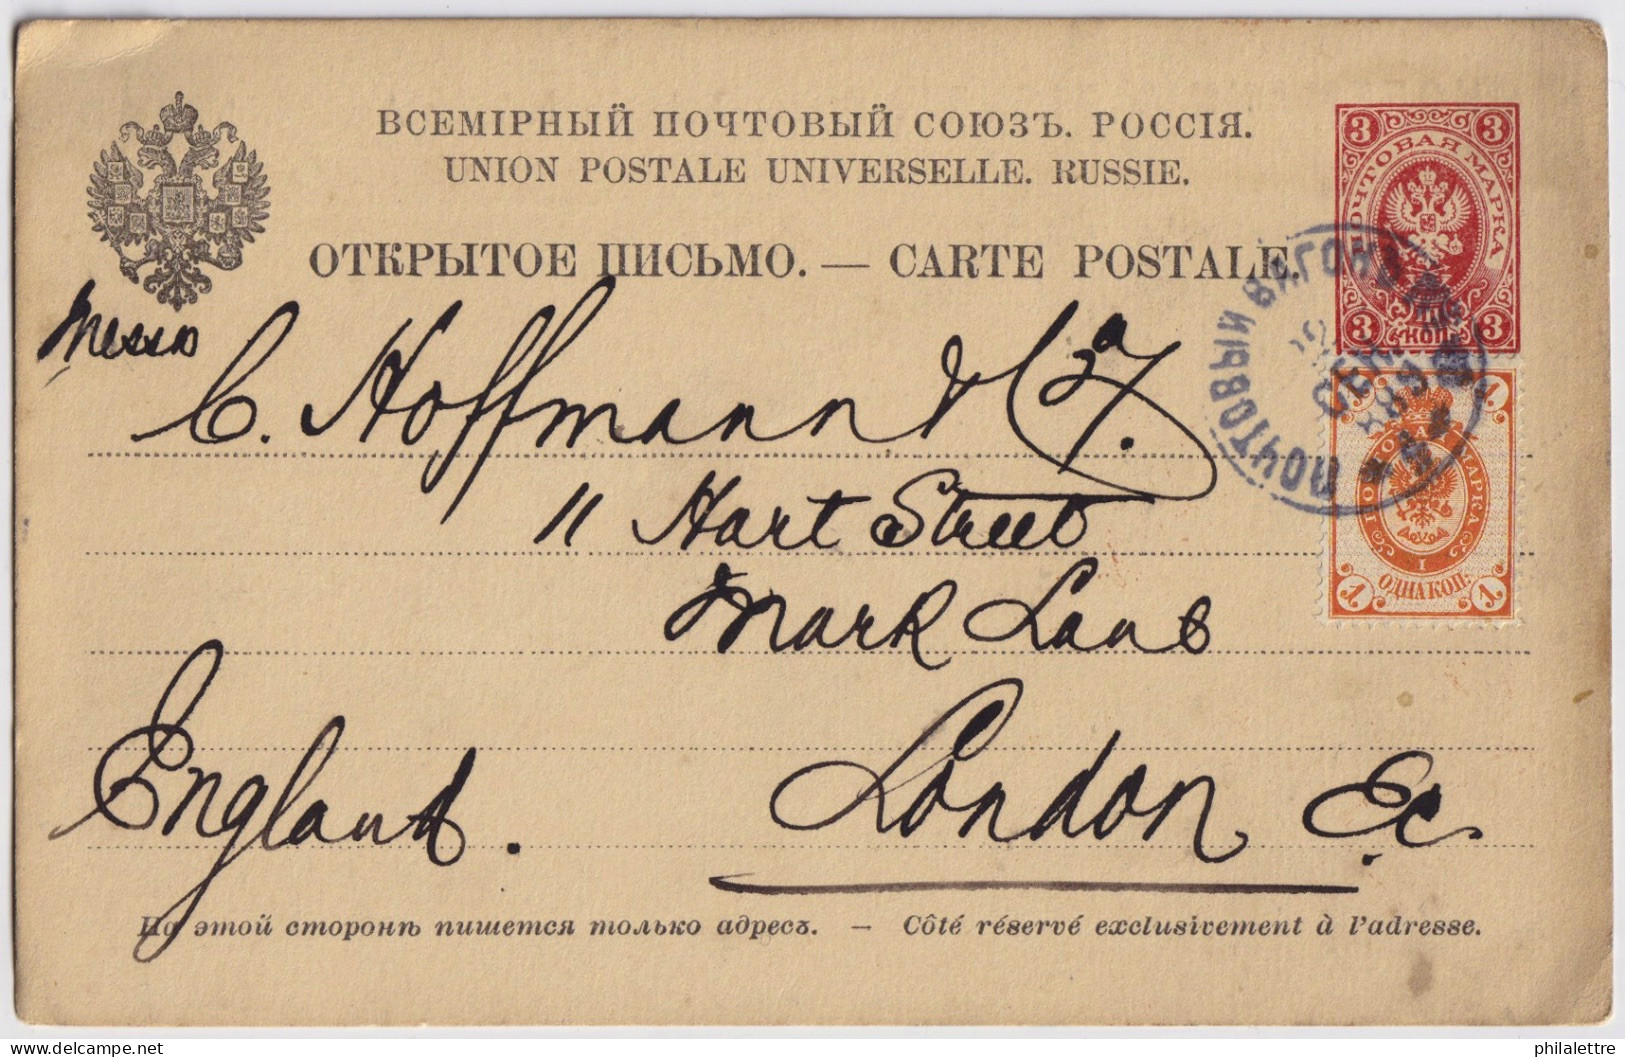 ВСЕМІРНЫЙ ПОЧТОВЫЙ СОЮЗЪ. РОССІЯ.
UNION POSTALE UNIVERSELLE. RUSSIE.
ОТКРЫТОЕ ПИСЬМО. — CARTE POSTALE.
3 3
ПОЧТОВАЯ МАРКА
3 КОП. 3
ПОЧТОВЫЙ ВАГОНЪ
1 1
ПОЧТОВАЯ МАРКА
1
1 ОДНА КОП. 1
Messrs
C. Hoffmann &
11 Hart Street
Mark Lane
London E.C.
England.
На этой сторонѣ пишется только адресъ. — Côté réservé exclusivement à l'adresse.
philalettre